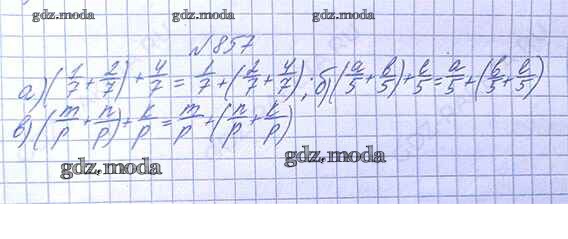 gdz.moda gdz.moda gdz.moda
№857
а) (1/7 + 2/7) + 4/7 = 1/7 + (2/7 + 4/7); б) (a/5 + b/5) + c/5 = a/5 + (b/5 + c/5)
в) (m/p + n/p) + k/p = m/p + (n/p + k/p)
gdz.moda gdz.moda